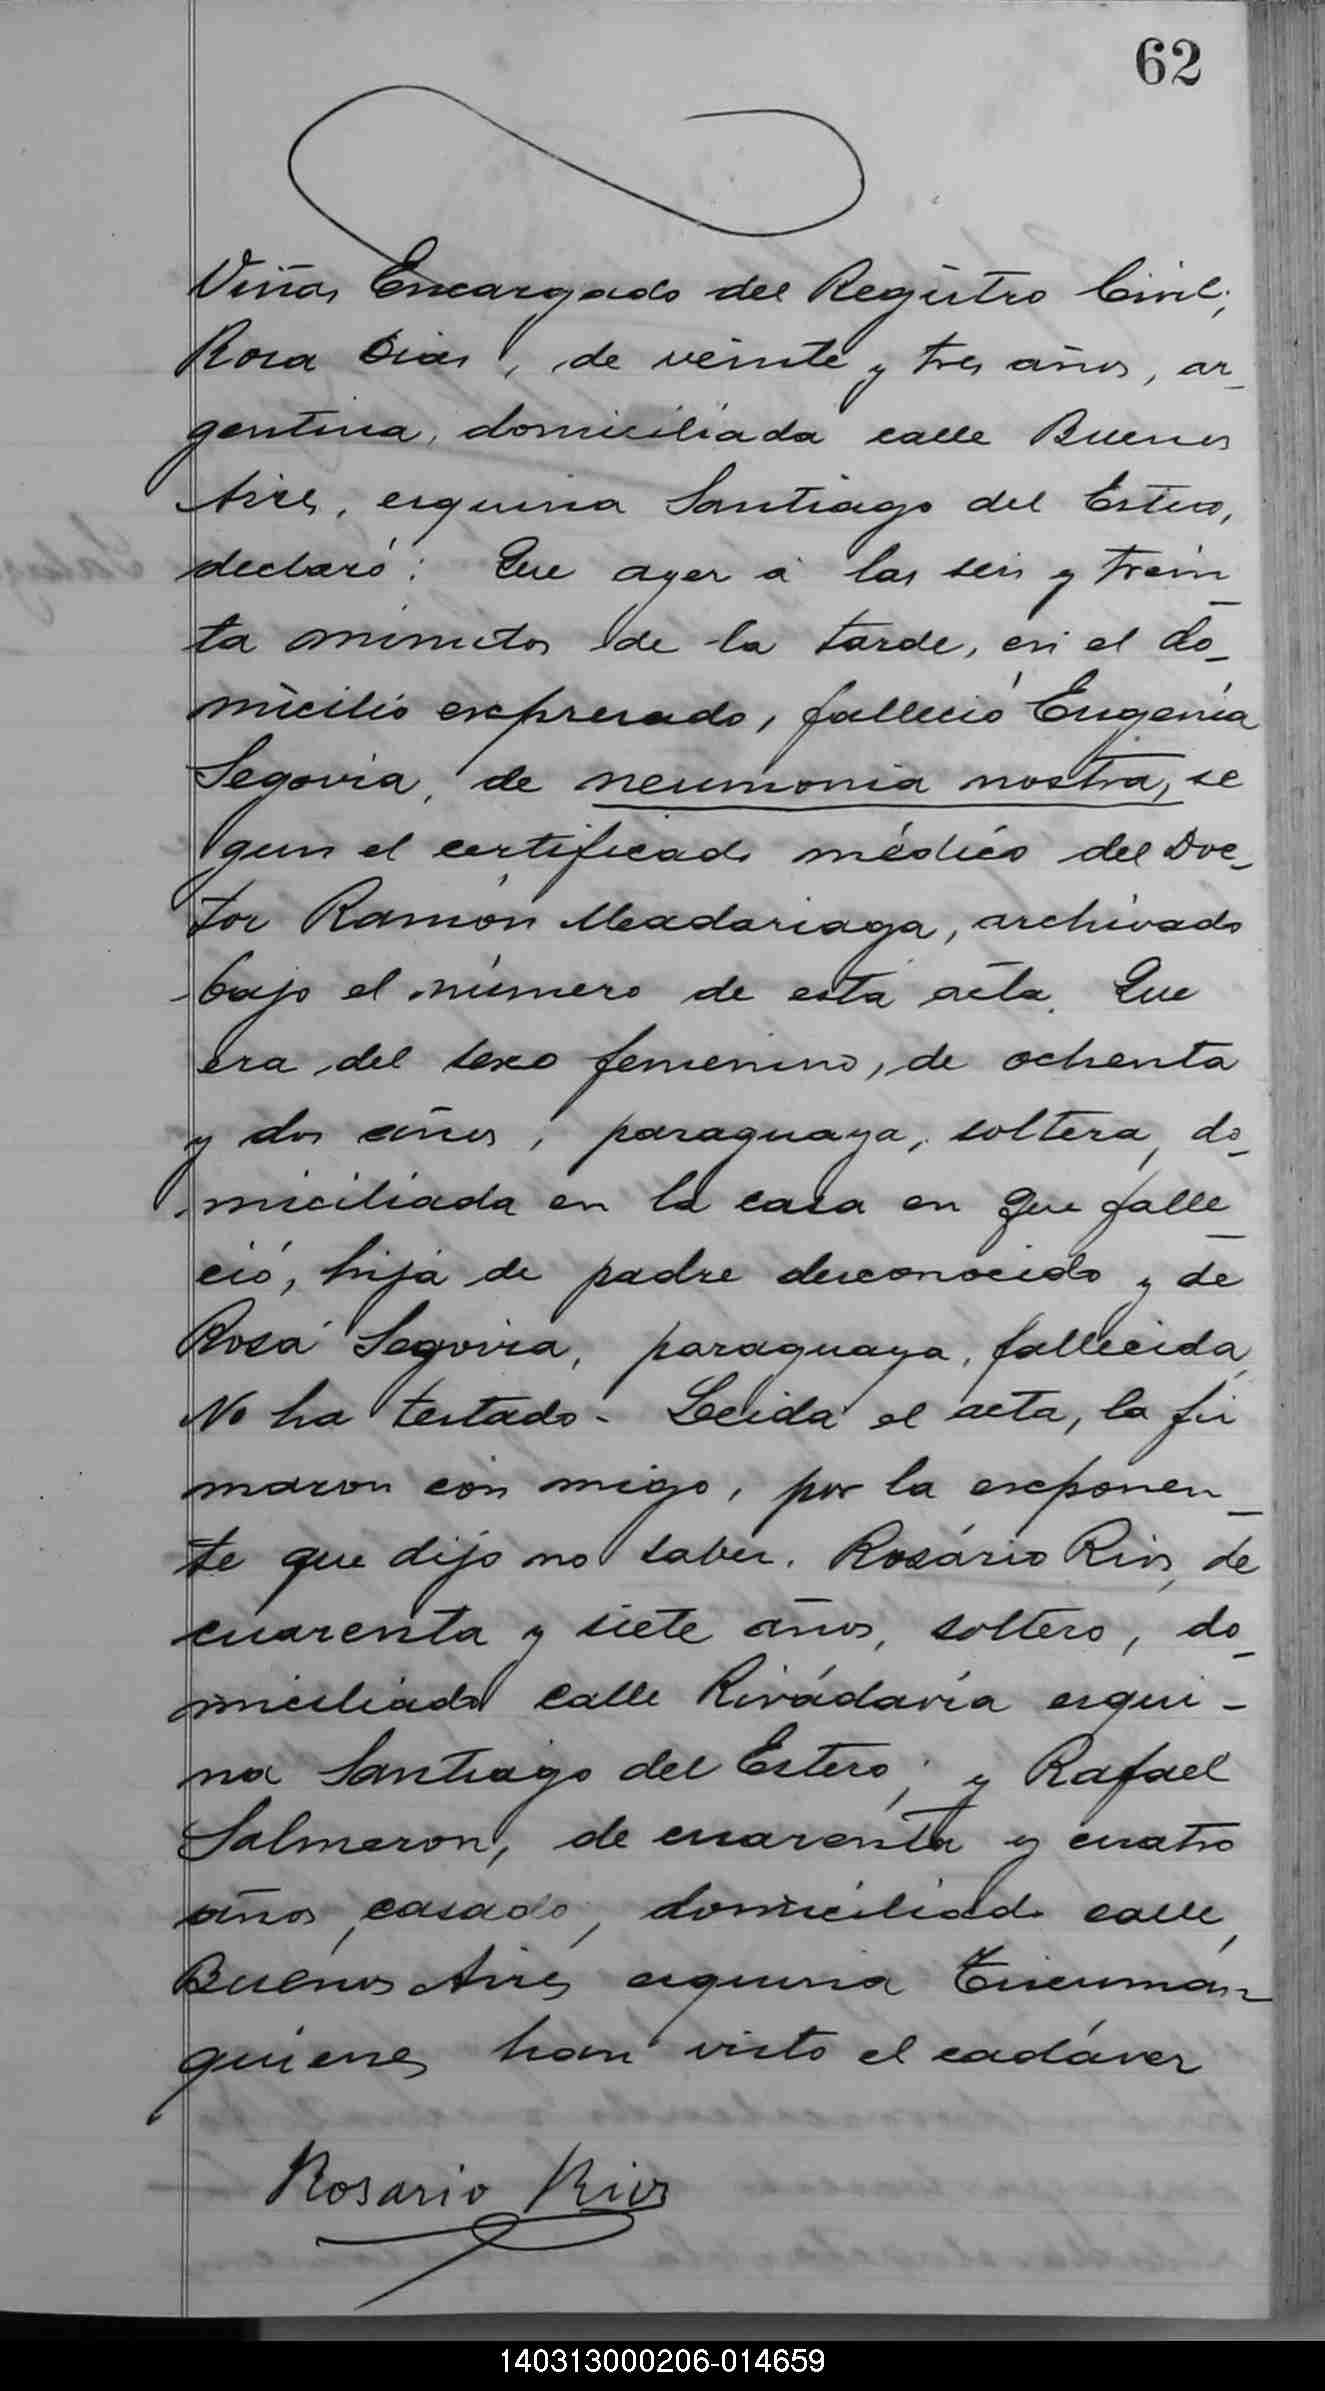 62
Viñas Encargado del Registro Civil;
Rosa Dias, de veinte y tres años, ar_
gentina, domiciliada calle Buenos
Aires, esquina Santiago del Estero,
declaró: Que ayer á las seis y trein_
ta minutos de la tarde, en el do_
micilio expresado, falleció Eugenia
Segovia, de neumonia nostra, se
gun el certificado médico del Doc_
tor Ramón Madariaga, archivado
bajo el número de esta acta. Que
era del sexo femenino, de ochenta
y dos años, paraguaya, soltera, do_
miciliada en la casa en que falle_
ció, hija de padre desconocido y de
Rosa Segovia, paraguaya, fallecida,
No ha testado - Leida el acta, la fir
maron con migo, por la exponen_
te que dijo no saber. Rosário Rios, de
cuarenta y siete años, soltero, do_
miciliado calle Rivádavia esqui-
na Santiago del Estero; y Rafael
Salmeron, de cuarenta y cuatro
años, casado, domiciliado calle,
Buenos Aires esquina Tucumán
quienes han visto el cadáver
Rosario Rios
140313000206-014659